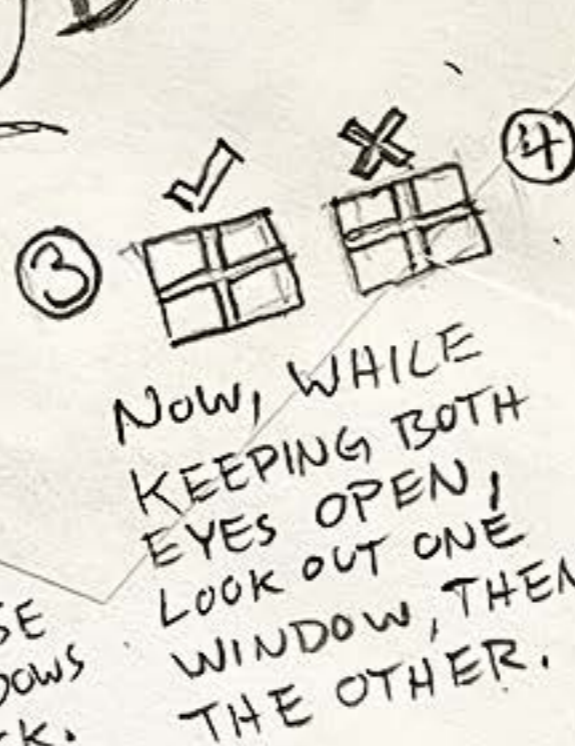 3
4
NOW, WHILE
KEEPING BOTH
EYES OPEN,
LOOK OUT ONE
WINDOW, THEN
THE OTHER.